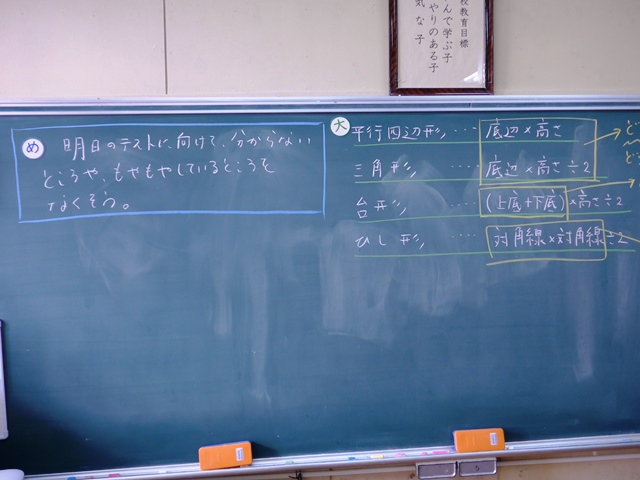 校教育目標
んで学ぶ子
やりのある子
気な子
め 明日のテストに向けて、分からない
ところや、もやもやしているところを
なくそう。
大 平行四辺形 ‥‥ 底辺×高さ
三角形 ‥‥ 底辺×高さ÷2
台形 ‥‥ (上底+下底)×高さ÷2
ひし形 ‥‥ 対角線×対角線÷2